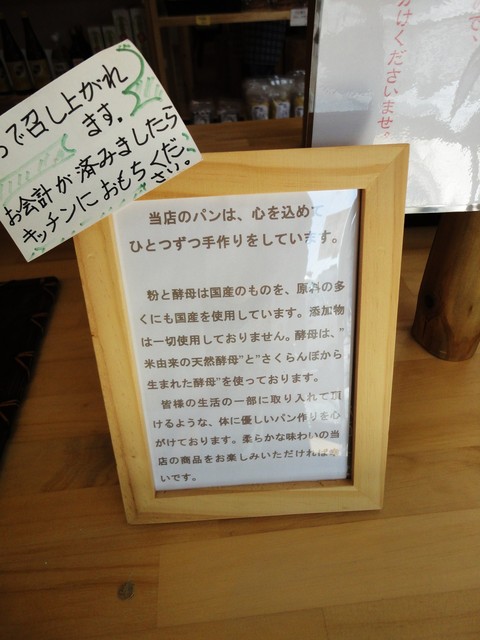 で召し上がれ
ます。
お会計が済みましたら
キッチンにおもちくだ
さい。
かけくださいませ。
当店のパンは、心を込めて
ひとつずつ手作りをしています。
粉と酵母は国産のものを、原料の多
くにも国産を使用しています。添加物
は一切使用しておりません。酵母は、"
米由来の天然酵母"と"さくらんぼから
生まれた酵母"を使っております。
皆様の生活の一部に取り入れて頂
けるような、体に優しいパン作りを心
がけております。柔らかな味わいの当
店の商品をお楽しみいただければ幸
いです。